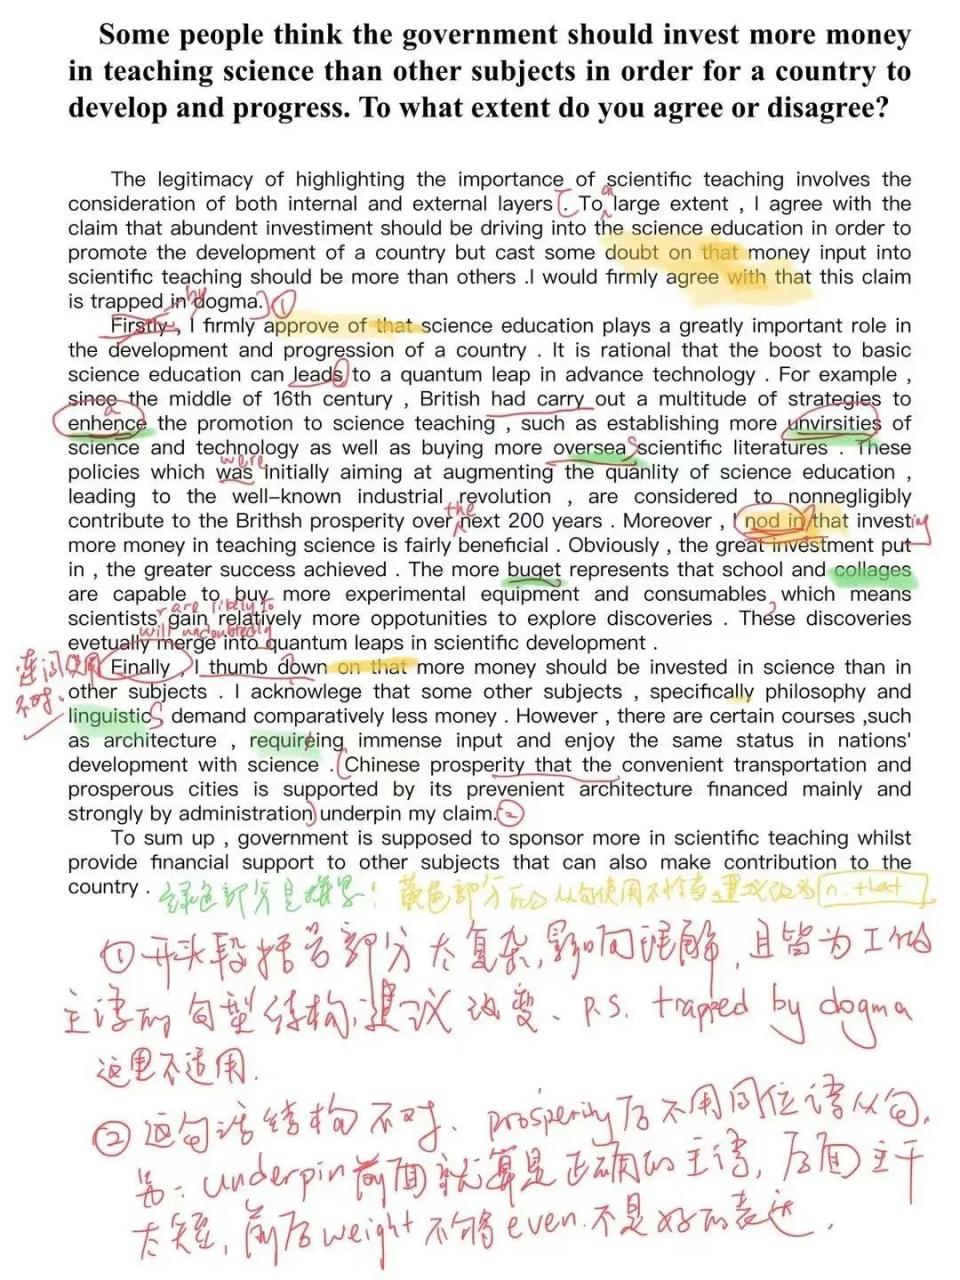 Some people think the government should invest more money
in teaching science than other subjects in order for a country to
develop and progress. To what extent do you agree or disagree?
The legitimacy of highlighting the importance of scientific teaching involves the
consideration of both internal and external layers . To a large extent , I agree with the
claim that abundent investiment should be driving into the science education in order to
promote the development of a country but cast some doubt on that money input into
scientific teaching should be more than others .I would firmly agree with that this claim
by
is trapped in dogma. ①
Firstly , I firmly approve of that science education plays a greatly important role in
the development and progression of a country . It is rational that the boost to basic
science education can leads to a quantum leap in advance technology . For example ,
since the middle of 16th century , British had carry out a multitude of strategies to
a
enhence the promotion to science teaching , such as establishing more unvirsities of
science and technology as well as buying more oversea s scientific literatures . These
were
policies which was initially aiming at augmenting the quanlity of science education ,
leading to the well-known industrial revolution , are considered to nonnegligibly
the
contribute to the Brithsh prosperity over next 200 years . Moreover , I nod in that investing
more money in teaching science is fairly beneficial . Obviously , the great investment put
in , the greater success achieved . The more buget represents that school and collages
are capable to buy more experimental equipment and consumables , which means
are likely to
scientists gain relatively more oppotunities to explore discoveries . These discoveries
will undoubtedly
evetually merge into quantum leaps in scientific development .
连词使用
不对.
Finally , I thumb down on that more money should be invested in science than in
other subjects . I acknowlege that some other subjects , specifically philosophy and
linguistics demand comparatively less money . However , there are certain courses ,such
as architecture , requireing immense input and enjoy the same status in nations'
development with science . (Chinese prosperity that the convenient transportation and
prosperous cities is supported by its prevenient architecture financed mainly and
strongly by administration) underpin my claim. ②
To sum up , government is supposed to sponsor more in scientific teaching whilst
provide financial support to other subjects that can also make contribution to the
country .
绿色部分是拼写! 黄色部分后的从句使用不恰当建议改为 n. that
①开头段括号部分太复杂,影响理解,且皆为I做
主语的句型结构,建议改变、P.S. trapped by dogma
这里不适用.
②这句话结构不对、prosperity后不用同位语从句,
另:underpin前面就算是正确的主语,后面主干
太短,前后weight不够even.不是好的表达.